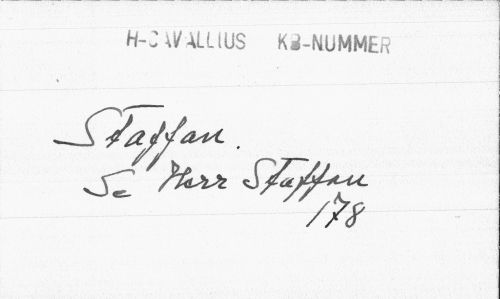 H-CAVALLIUS KB-NUMMER
Staffan.
Se Herr Staffan
178